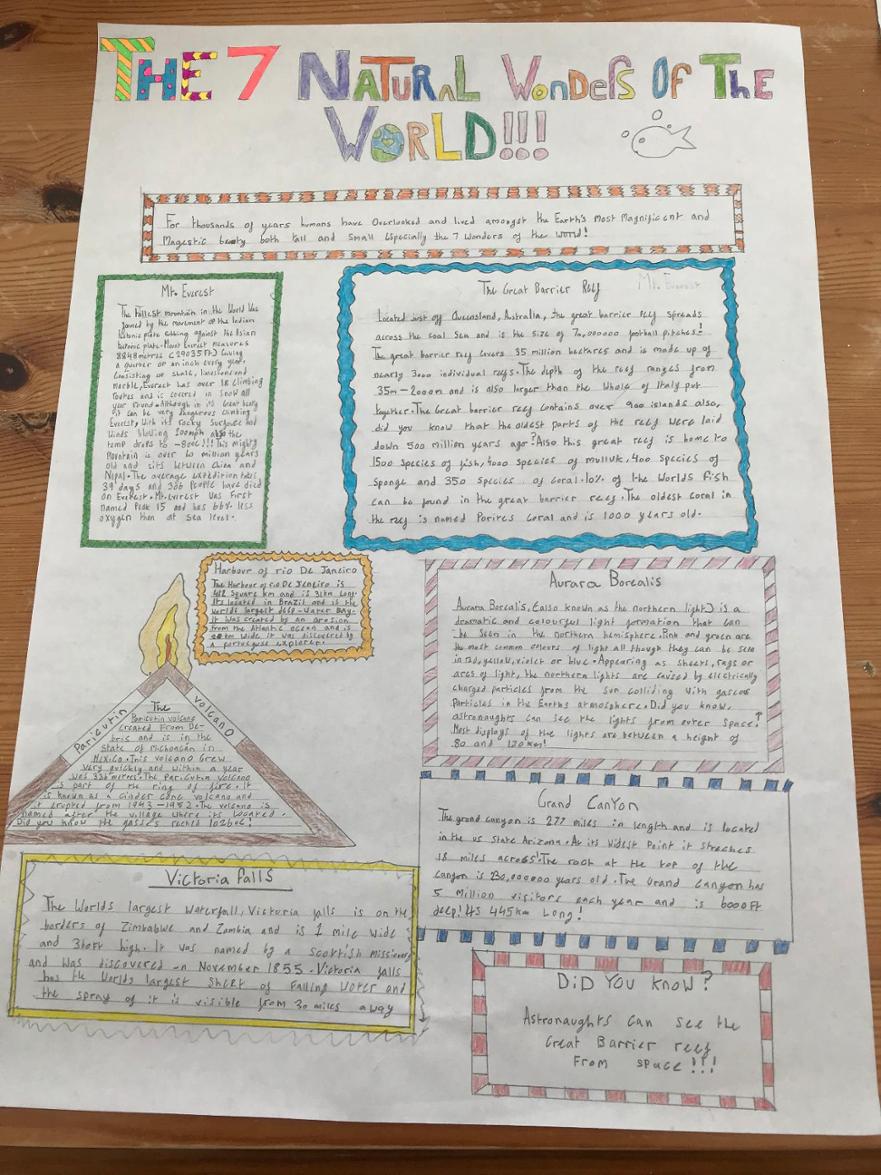 THE 7 NATURAL WONDERS OF THE
WORLD!!!
For thousands of years humans have overlooked and lived amongst the Earth's Most Magnificent and
Magestic beaty both tall and small especially the 7 wonders of the world!
Mt. Everest
The tallest mountain in the World Was
formed by the movement of the Indian
tectonic plate against the Asian
tectonic plate. Mount Everest measures
8848 metres (29035 Ft) Growing
a quarter of an inch every year.
Consisting of shale, limestone and
Marble, Everest has over 18 climbing
routes and is covered in snow all
year round. Although it is great beauty
it can be very dangerous climbing
Everest, With its rocky surface and
Winds blowing 100mph also the
temp drops to -80°C!!! This mighty
Mountain is over 60 million years
old and sits between China and
Nepal. The average expedition takes
39 days and 306 people have died
on Everest. Mt. Everest was first
named Peak 15 and has 66% less
oxygen then at sea level.
Mt. Everest
The Great Barrier Reef
Located just off Queensland, Australia, the great barrier reef spreads
across the coal Sea and is the size of 70,000000 football pitches!
The great barrier reef covers 35 million hectares and is made up of
nearly 3000 individual reefs. The depth of the reef ranges from
35m-2000m and is also larger than the Whole of Italy put
together. The Great barrier reef contains over 900 islands also,
did you know that the oldest parts of the reef were laid
down 500 million years ago? Also this great reef is home to
1500 species of fish, 4000 species of mullusk, 400 species of
sponge and 350 species of coral. 10% of the Worlds fish
can be found in the great barrier reef. The oldest coral in
the reef is named Porires coral and is 1000 years old.
Harbour of rio De Janeiro
The Harbour of rio De Jeneiro is
412 square km and is 31km long.
Its located in Brazil and is the
worlds largest deep-water Bay.
It was created by an erosion
from the Atlantic ocean and is
km wide. It was discovered by
a portugese explorer.
Aurara Borealis
Aurara Borealis, (also known as the northern light) is a
dramatic and colourful light formation that can
be seen in the northern hemisphere. Pink and green are
the most common colours of light all though they can be seen
in red, yellow, violet or blue. Appearing as sheets, rays or
arcs of light, the northern lights are caused by electrically
charged particles from the sun colliding with gaseos
particles in the Earths atmosphere. Did you know,
astronaughts can see the lights from outer space?
Most displays of the lights are between a height of
80 and 120km!
Paricutin Volcano
The
Paricutin volcano
created From De-
bris and is in the
State of Michoacan in
Mexico. This volcano Grew
very quickly and within a year
was 336 metres. The Paricutin Volcano
is part of the ring of fire. It
is known as a Cinder cone volcano and
it erupted from 1943-1952. The volcano is
named after the village where its located.
Did you know the gasses reched 1020°c!
Grand Canyon
The grand canyon is 277 miles in length and is located
in the us state Arizona. At its widest point it streaches
18 miles across! The rock at the top of the
canyon is 230,000000 years old. The Grand Canyon has
5 Million visitors each year and is 6000Ft
deep! Its 445km Long!
Victoria falls
The Worlds largest Waterfall, Victoria falls is on the
borders of Zimbabwe and Zambia and is 1 mile wide
and 360ft high. It was named by a Scottish missionary
and was discovered in November 1855. Victoria falls
has the Worlds largest sheet of falling water and
the spray of it is visible from 30 miles away
DiD YOU KNOW?
Astronaughts can see the
Great Barrier reef
From space!!!